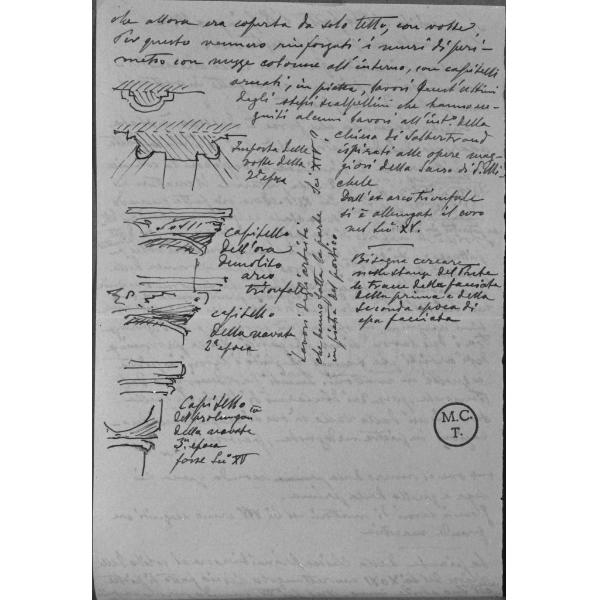 che allora era coperta da solo tetto, con volte
Per questo vennero rinforzati i muri di peri-
metro con mezze colonne all'interno, con capitelli
ornati, in pietra, lavori
degli stessi scalpellini che hanno ese-
guiti alcuni lavori all'int.º della
chiesa di Salbertrand
ispirati alle opere mag-
giori della Sacra di S. Mi-
chele
Dall'ex arco trionfale
si è allungato il coro
nel Sec XV.
Imposta delle
volte della
2ª epoca
capitello
dell'ora
demolito
arco
trionfale
capitello
della navata
2ª epoca
Capitello
del prolungam.to
della navata
3ª epoca
forse Sec XV
lavori degli artisti
che hanno fatto la parte
in pietra del portico
Sec XIV?
Bisogna cercare
nelle stanze del Prete
le tracce della facciata
della prima e della
seconda epoca di
essa facciata
M.C.
T.